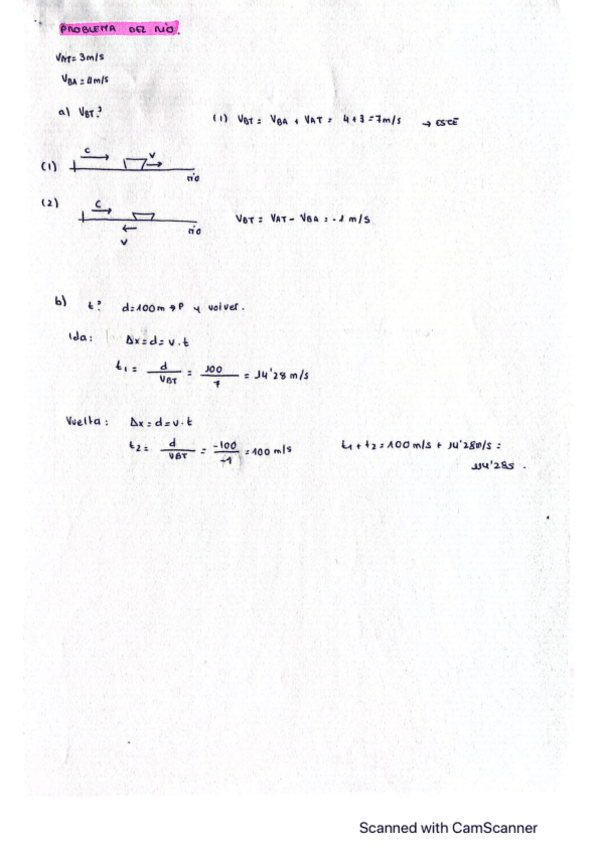 PROBLEMA DEL RÍO.
VAT = 3m/s
VBA = 4m/s
a) VBT?
(1) VBT = VBA + VAT = 4+3 = 7m/s → ESTE
(1) C V río
(2) C V río
VBT = VAT - VBA = -1 m/s
b) t? d=100m → P y volver.
Ida: Δx = d = v·t
t1 = d/VBT = 100/7 = 14'28 m/s
Vuelta: Δx = d = v·t
t2 = d/VBT = -100/-1 = 100 m/s
t1 + t2 = 100 m/s + 14'28m/s =
114'28s.
Scanned with CamScanner